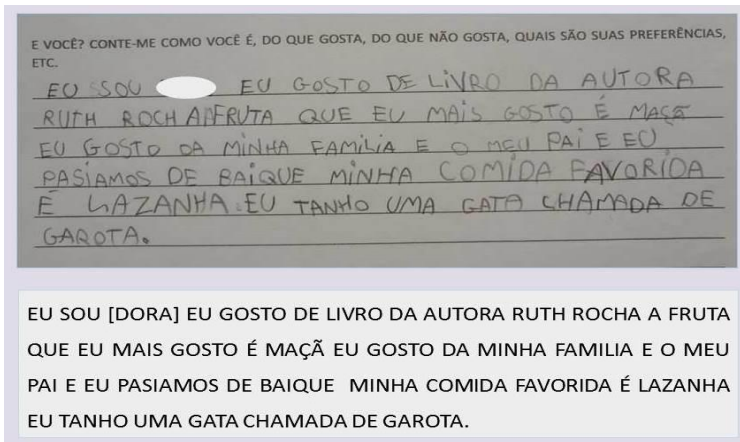 E VOCÊ? CONTE-ME COMO VOCÊ É, DO QUE GOSTA, DO QUE NÃO GOSTA, QUAIS SÃO SUAS PREFERÊNCIAS,
ETC.
EU SOU EU GOSTO DE LIVRO DA AUTORA
RUTH ROCHA A FRUTA QUE EU MAIS GOSTO É MAÇÃ
EU GOSTO DA MINHA FAMILIA E O MEU PAI E EU
PASIAMOS DE BAIQUE MINHA COMIDA FAVORIDA
É LAZANHA. EU TANHO UMA GATA CHAMADA DE
GAROTA.
EU SOU [DORA] EU GOSTO DE LIVRO DA AUTORA RUTH ROCHA A FRUTA
QUE EU MAIS GOSTO É MAÇÃ EU GOSTO DA MINHA FAMILIA E O MEU
PAI E EU PASIAMOS DE BAIQUE MINHA COMIDA FAVORIDA É LAZANHA
EU TANHO UMA GATA CHAMADA DE GAROTA.